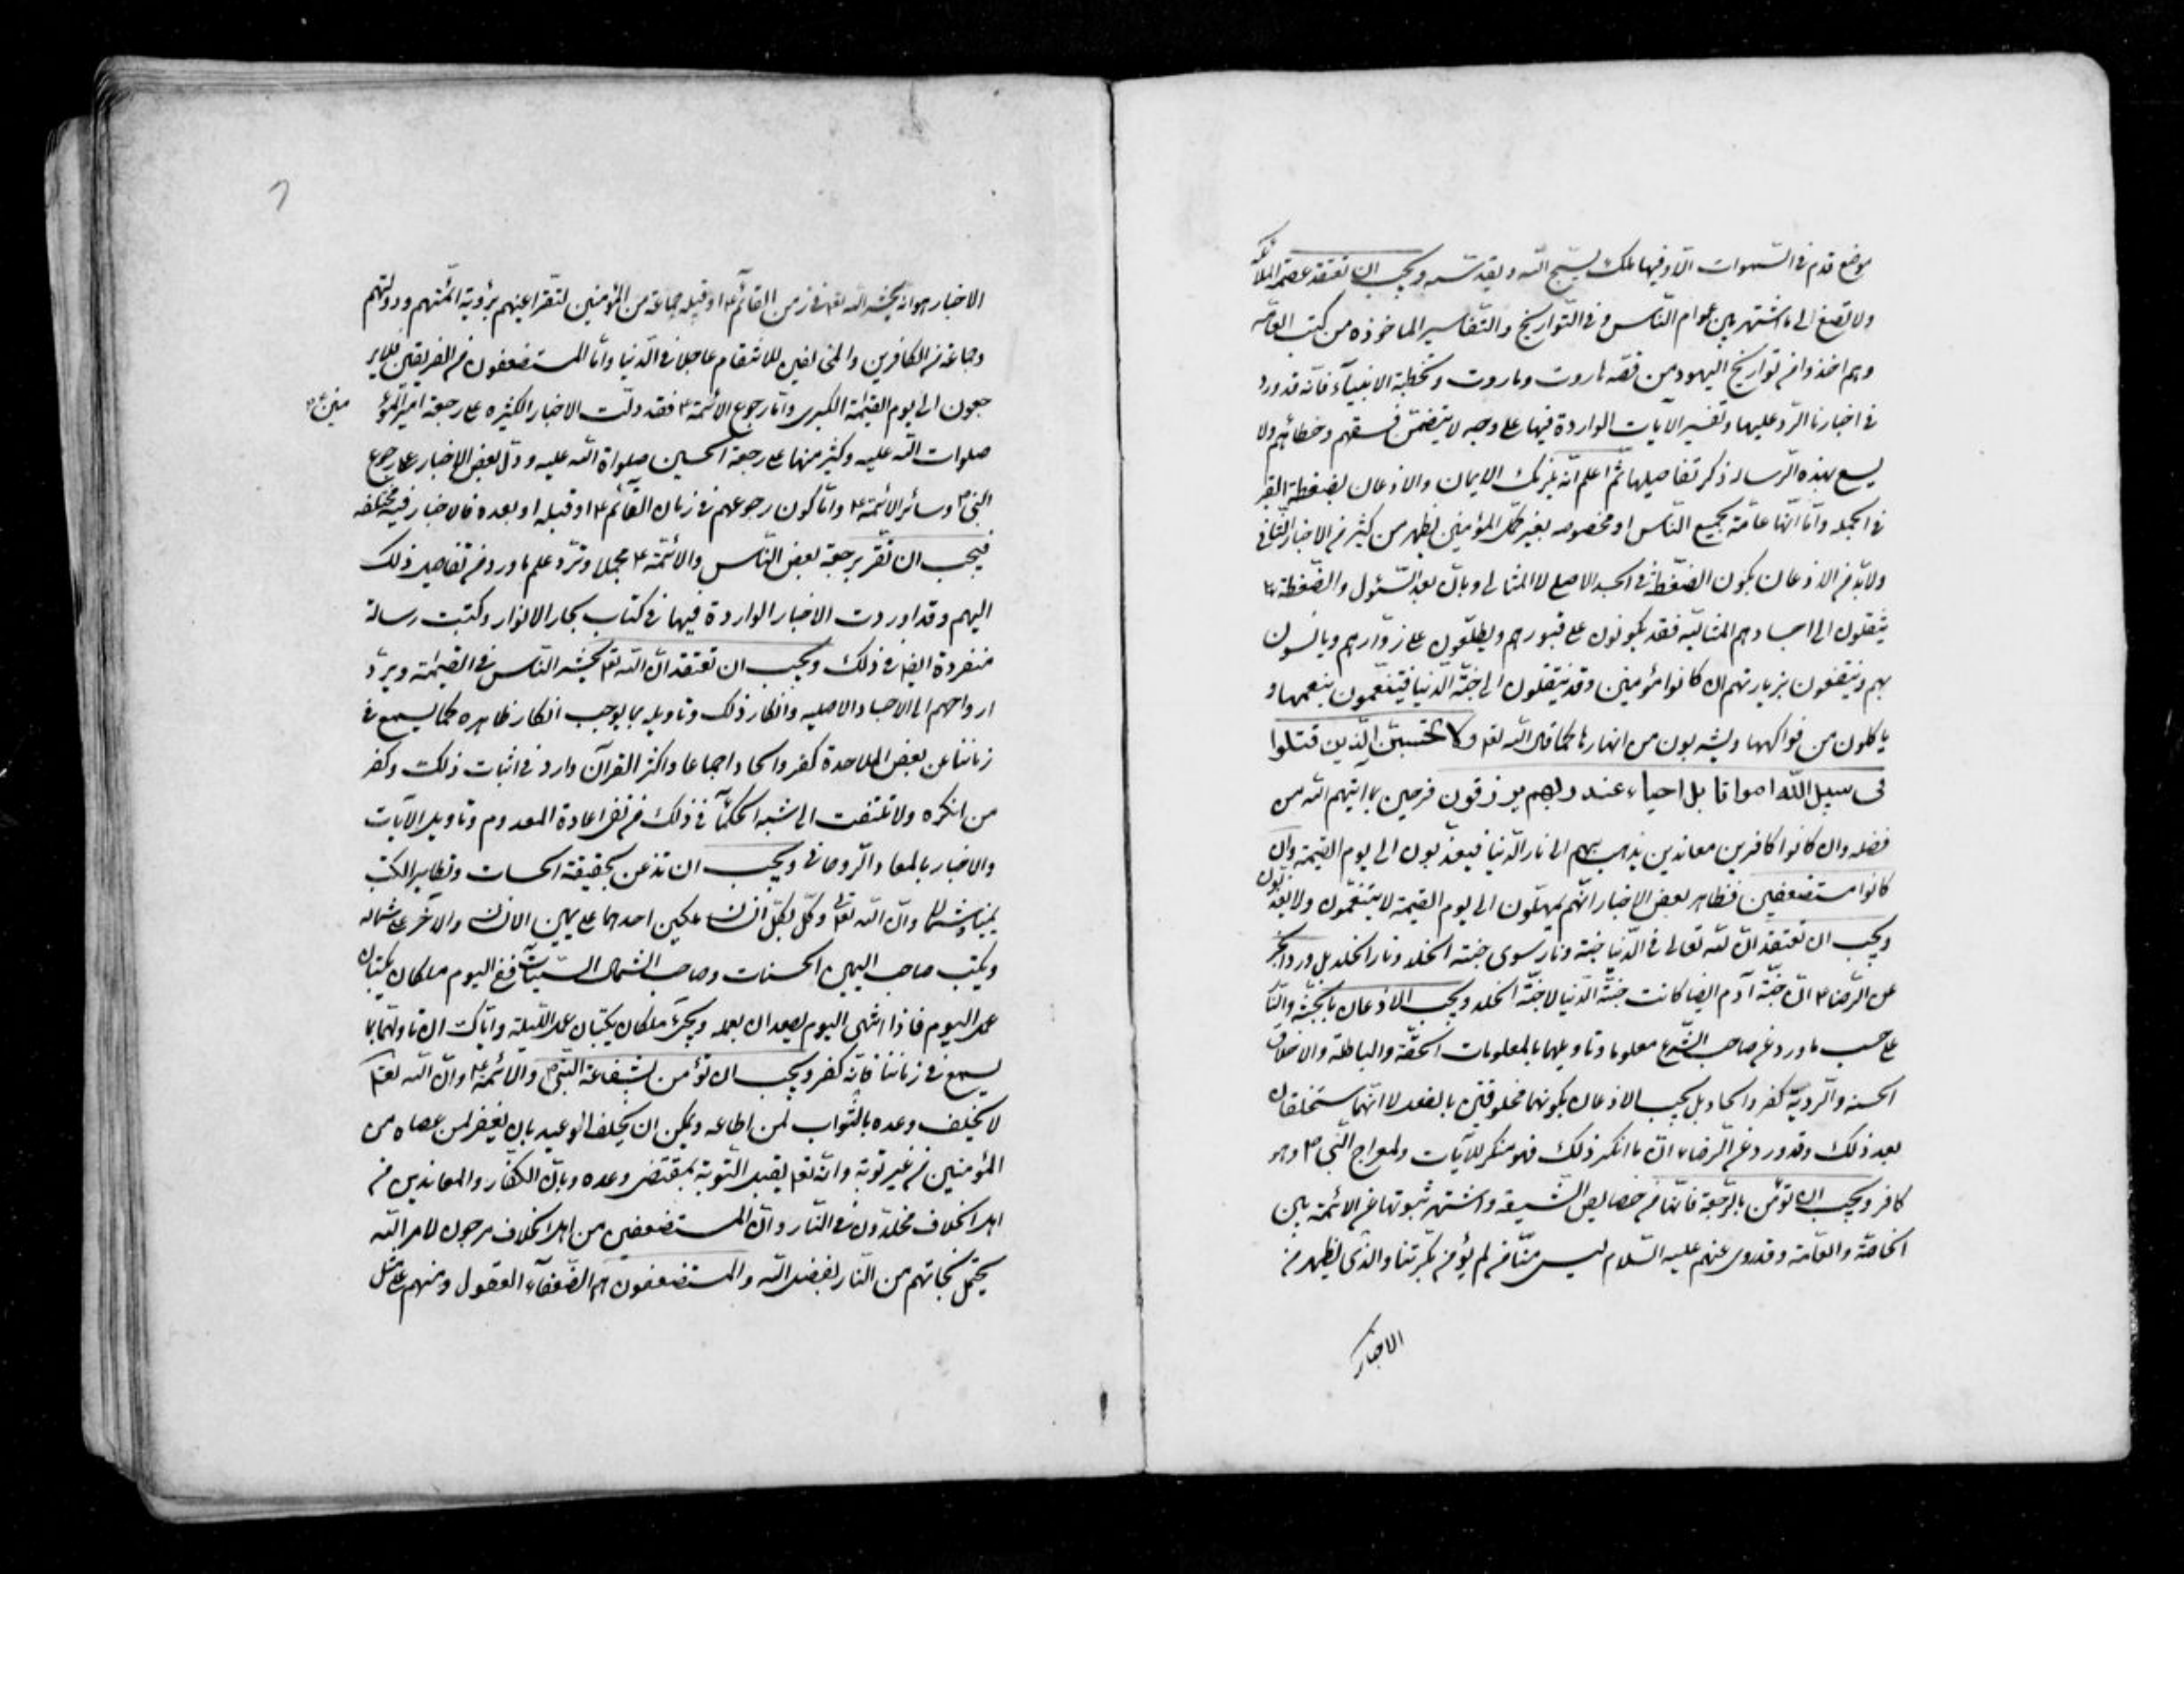 موضع قدم فى السّموات الّا و فيها ملك يسبّح اللّه و يقدّسه و يجب ان تعتقد عصمة الملائكة
ولا تصغ الى ما اشتهر بين عوام النّاس و فى التّواريخ والتّفاسير الماخوذه من كتب العامّه
و هم اخذوا من تواريخ اليهود من قصّه هاروت وماروت وتخطئة الانبياء فانّه قد ورد
فى اخبارنا الرّد عليها و تفسير الآيات الواردة فيها على وجه لا يتضمّن فسقهم و خطائهم ولا
يسع هذه الرّساله ذكر تفاصيلها ثمّ اعلم انّه يلزمك الايمان والاذعان بضغطة القبر
فى الجمله وامّا انّها عامّة بجميع النّاس او مخصوصه بغير كمّل المؤمنين يظهر من كثير من الاخبار الثّانى
ولا بدّ من الاذعان بكون الضّغطة فى الجسد الاصلى لا المثالى وبانّ بعد السّئول والضّغطة
ينقلون الى اجسادهم المثاليه فقد يكونون على قبورهم ويطّلعون على زوّارهم ويانسون
بهم وينتفعون بزيارتهم ان كانوا مؤمنين وقد ينتقلون الى جنّة الدّنيا فيتنعّمون بنعمها و
ياكلون من فواكهها ويشربون من انهارها كما قال اللّه تعا ولا تحسبنّ الّذين قتلوا
فى سبيل اللّه امواتا بل احياء عند ربهم يرزقون فرحين بما اتيهم اللّه من
فضله وان كانوا كافرين معاندين يذهب بهم الى نار الدّنيا فيعذّبون الى يوم القيمة وان
كانوا مستضعفين فظاهر بعض الاخبار انّهم يمهلون الى يوم القيمة لا يتنعّمون ولا يعذّبون
ويجب ان تعتقد انّ للّه تعالى فى الدّنيا جنّة ونار سوى جنّة الخلد ونار الخلد بل ورد الخبر
عن الرّضا ع انّ جنّة آدم ايضا كانت جنّة الدّنيا لا جنّة الخلد ويجب الاذعان بالجنّة والنّار
على حسب ما ورد عن صاحب الشّرع معلوما وتاويلها بالمعلومات الحقّة والباطلة والاخلاق
الحسنه والرّديّة كفر والحاد بل يجب الاذعان بكونهما مخلوقتين بالفعل لا انّهما ستخلقان
بعد ذلك وقد ورد عن الرّضا ع انّ ما انكر ذلك فهو منكر للآيات ولمعراج النّبى ص وهو
كافر ويجب ان تؤمن بالرّجعة فانّها من خصايص الشّيعة واشتهر ثبوتها عن الائمّة بين
الخاصّة والعامّة وقد روى عنهم عليه السّلام ليس منّا من لم يؤمن بكرّتنا والّذى يظهر من
الاخبار
الاخبار هو انه يحشر اللّه تعا فى زمن القائم ع او قبله جماعة من المؤمنين لتقرّ اعينهم برؤية ائمّتهم و دولتهم
وجماعة من الكافرين والمخالفين للانتقام عاجلا فى الدّنيا وامّا المستضعفون من الفريقين فلاير
جعون الى يوم القيمة الكبرى وامّا رجوع الائمّة ع فقد دلّت الاخبار الكثيره على رجعة امير المؤ منين ع
صلوات اللّه عليه وكثير منها على رجعة الحسين صلواة اللّه عليه ودلّ بعض الاخبار على رجوع
النّبى ص وسائر الائمّة ع وامّا كون رجوعهم فى زمان القآئم ع او قبله او بعده فالاخبار فيه مختلفه
فيجب ان تقرّ برجعة بعض النّاس والائمّة ع مجملا وتردّ علم ما ورد من تفاصيل ذلك
اليهم وقد اوردت الاخبار الواردة فيها فى كتاب بحار الانوار وكتبت رسالة
منفردة ايضا فى ذلك ويجب ان تعتقد انّ اللّه تعا يحشر النّاس فى القيمة ويردّ
ارواحهم الى الاجساد الاصليه وانكار ذلك وتاويله بما يوجب انكار ظاهره كما يسمع فى
زماننا عن بعض الملاحدة كفر والحاد اجماعا واكثر القرآن وارد فى اثبات ذلك وكفر
من انكره ولا تلتفت الى شبه الحكمآ فى ذلك من نفى اعادة المعدوم وتاويل الآيات
والاخبار بالمعاد الرّوحانى ويجب ان تذعن بحقيقة الحساب وتطاير الكتب
يمينا وشمالا وانّ اللّه تعا وكّل بكلّ انسان ملكين احدهما على يمين الانسان والآخر على شماله
ويكتب صاحب اليمين الحسنات وصاحب الشّمال السّيّئات ففى اليوم ملكان يكتبان
عمل اليوم فاذا انتهى اليوم يصعدان بعمله ويجىء ملكان يكتبان عمل اللّيلة وايّاك ان تاوّلهما بما
يسمع فى زماننا فانّه كفر ويجب ان تؤمن بشفاعة النّبى ص والائمّة ع وانّ اللّه تعا
لا يخلف وعده بالثّواب لمن اطاعه ويمكن ان يخلف الوعيد بان يغفر لمن عصاه من
المؤمنين من غير توبة وانّه تعا يقبل التّوبة بمقتضى وعده وبانّ الكفّار والمعاندين من
اهل الخلاف مخلّدون فى النّار وانّ المستضعفين من اهل الخلاف مرجون لامر اللّه
يحتمل نجاتهم من النّار بفضل اللّه والمستضعفون هم الضّعفآء العقول ومنهم على مثل